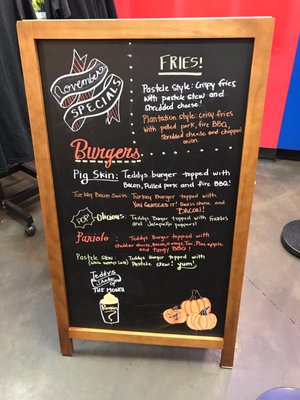 November
SPECIALS
FRIES!
Pastele style: Crispy fries
with pastele stew and
shredded cheese!
Plantation style: crispy fries
with pulled pork, fire BBQ,
shredded cheese and chopped
onion.
Burgers
Pig Skin: Teddys burger topped with
Bacon, Pulled pork and fire BBQ!
Turkey Bacon Swiss: Turkey burger topped with
Swiss cheese and
BACON!
POP Teddys Burger topped with Pickles
and Jalapeño poppers!
Paniolo: Teddys Burger topped with
cheddar cheese, Bacon, Pineapple
and tangy BBQ!
Pastele Stew: Teddys Burger topped with
Pastele stew! yum!
Teddys
Shake of
THE MONTH
Pumpkin